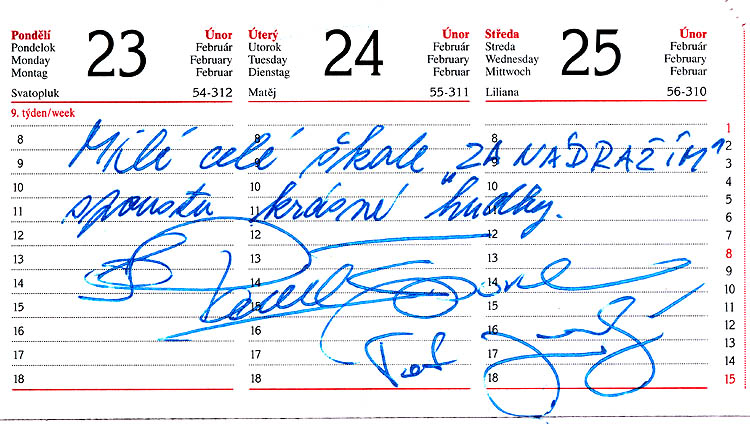 Pondělí Únor
Pondelok Február
Monday February
Montag Februar
23
Svatopluk 54-312
Úterý Únor
Utorok Február
Tuesday February
Dienstag Februar
24
Matěj 55-311
Středa Únor
Streda Február
Wednesday February
Mittwoch Februar
25
Liliana 56-310
9. týden/week
Milé celé škole "ZA NÁDRAŽÍM"
spoustu krásné hudby.
Pavel
8 8 8
9 9 9
10 10 10
11 11 11
12 12 12
13 13 13
14 14 14
15 15 15
16 16 16
17 17 17
18 18 18
1
2
3
4
5
6
7
8
9
10
11
12
13
14
15